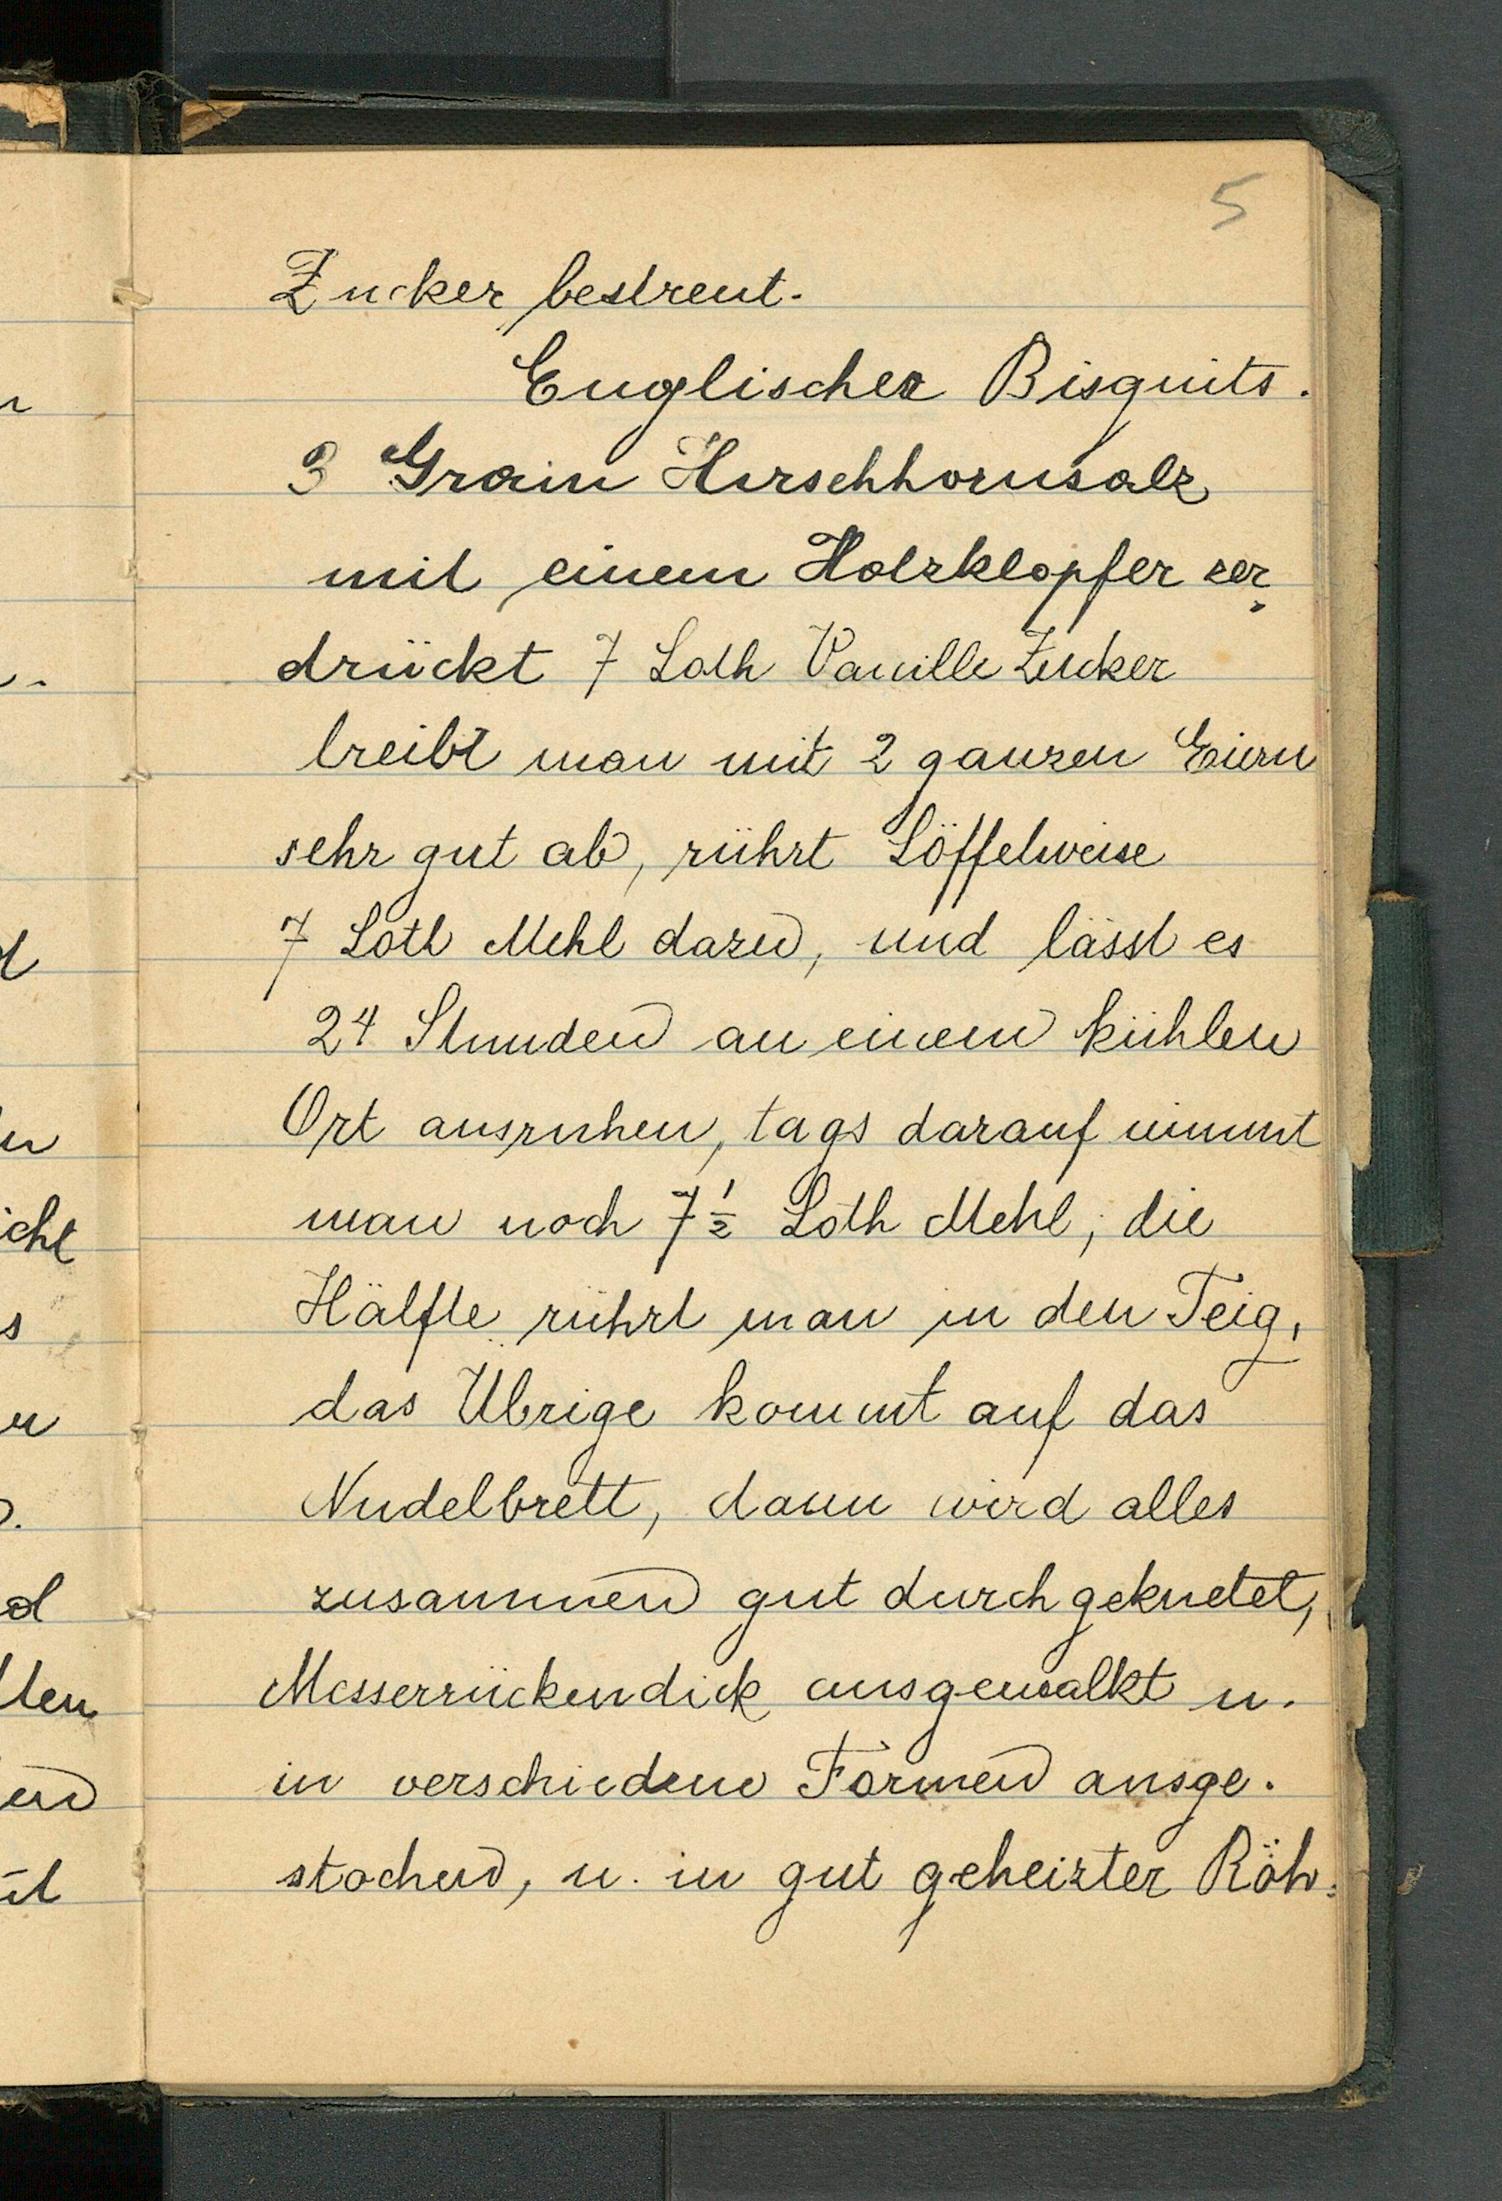 5
Zucker bestreut.
Englischer Bisquits.
3 Grain Hirschhornsalz
mit einem Holzklopfer zer
drückt 7 Loth Vanille Zucker
treibt man mit 2 ganzen Eiern
sehr gut ab, rührt Löffelweise
7 Loth Mehl dazu, und lässt es
24 Stunden an einem kühlen
Ort ausruhen, tags darauf nimmt
man noch 7 ½ Loth Mehl, die
Hälfte rührt man in den Teig,
das Übrige kommt auf das
Nudelbrett, dann wird alles
zusammen gut durchgeknetet,
Messerrückendick ausgewalkt u.
in verschiedene Formen ausge-
stochen, u. in gut geheizter Röh-